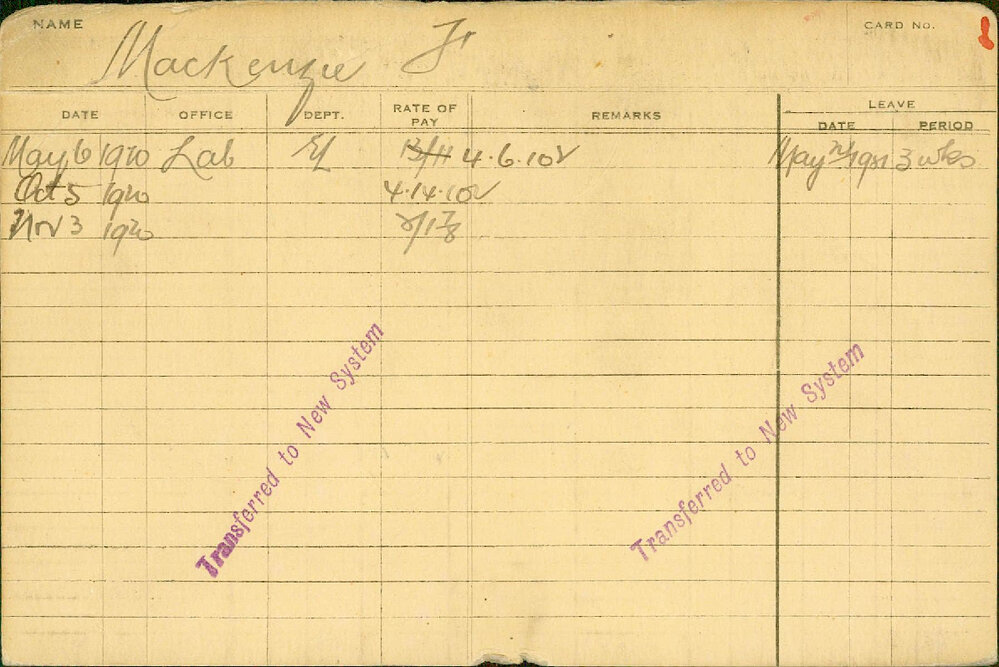 NAME
CARD No.
Mackenzie
DATE OFFICE DEPT. RATE OF PAY REMARKS LEAVE
DATE PERIOD
May 6 1920 Lab 4.6.10 May 1921 3 wks
Oct 5 1920 4.14.10
Nov 3 1920
Transferred to New System
Transferred to New System